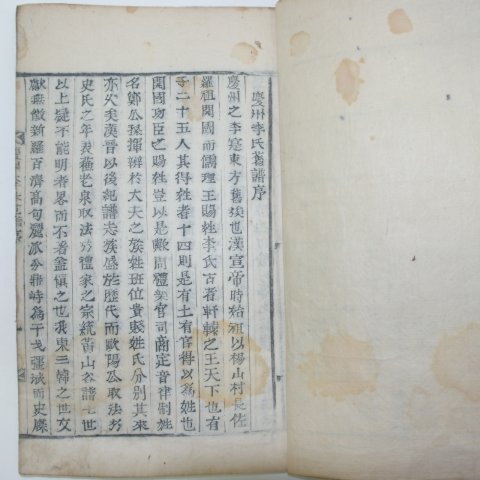 慶州李氏舊譜序
慶州之李寔東方舊族也漢宣帝時始祖以楊山村長佐
羅祖開國而儒理王賜姓李氏古者軒轅之王天下也有
子二十五人其得姓者十四則是有土有官得以為姓也
開國功臣之賜姓豈以是歟問禮樂官司商定音律制姓
名鄭公子揮辨於大夫之族姓班位貴賤姓氏分別其來
亦久矣漢晉以後紀譜志族盛於歷代而歐陽公取法於
史氏之年表蘇老泉取法於禮家之宗統黃山谷譜七世
以上變不能明者畧而不著盖愼之也我東三韓之世文
獻無徵新羅百濟高句麗派分鼎峙為干戈疆域而史牒